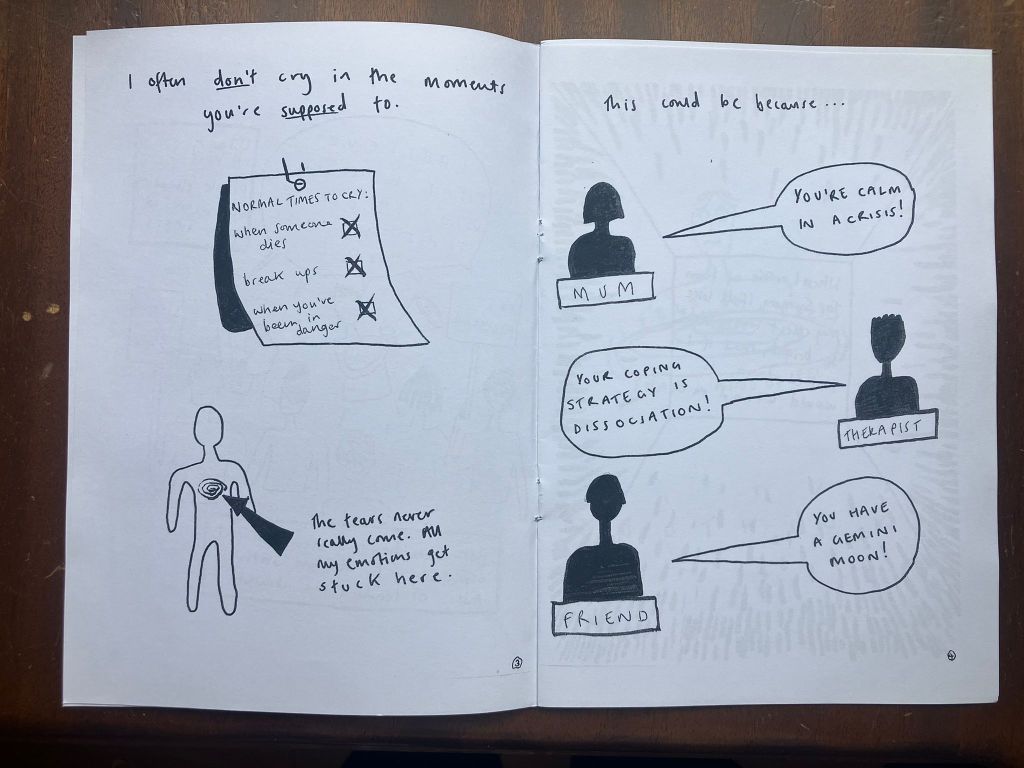 I often don't cry in the moments
you're supposed to.
NORMAL TIMES TO CRY:
when someone
dies
break ups
when you've
been in
danger
The tears never
really come. All
my emotions get
stuck here.
3
This could be because...
YOU'RE CALM
IN A CRISIS!
MUM
YOUR COPING
STRATEGY IS
DISSOCIATION!
THERAPIST
YOU HAVE
A GEMINI
MOON!
FRIEND
4